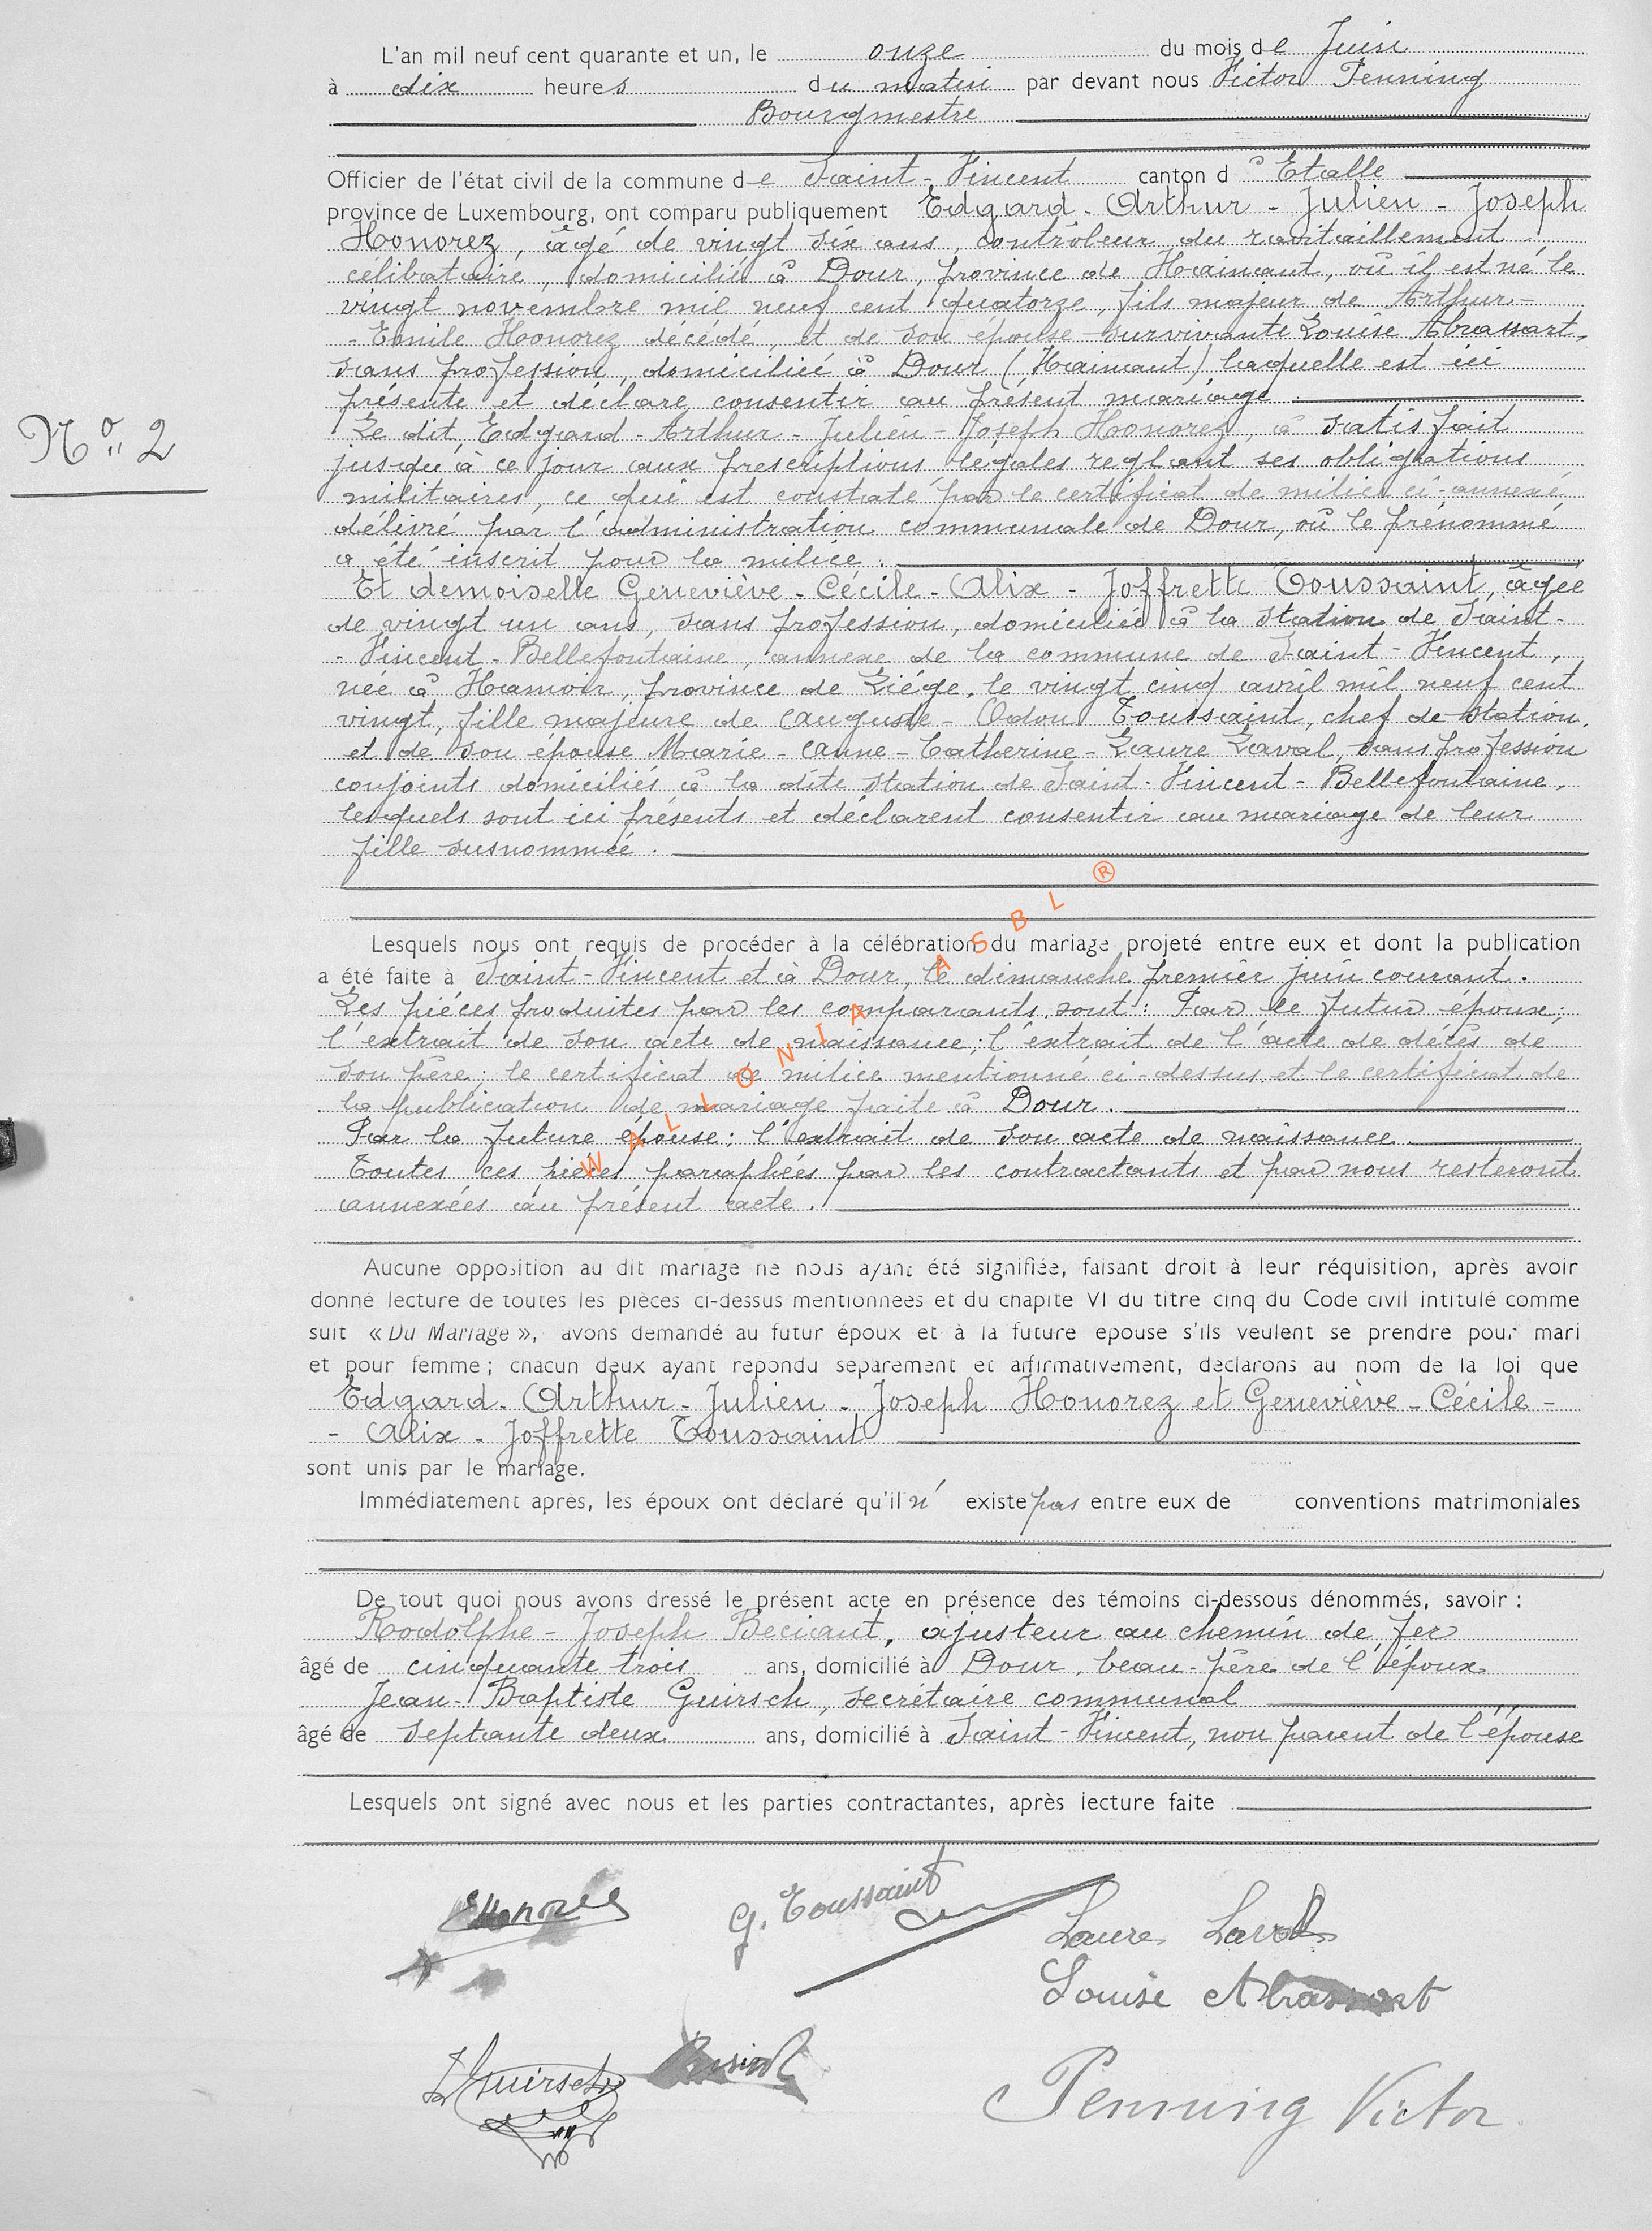 L'an mil neuf cent quarante et un, le onze du mois de Juin
à dix heures du matin par devant nous Victor Penning
Bourgmestre
Officier de l'état civil de la commune de Saint-Vincent canton d'Etalle
province de Luxembourg, ont comparu publiquement Edgard - Arthur - Julien - Joseph
Honorez, âgé de vingt six ans, contrôleur du ravitaillement
célibataire, domicilié à Dour, province de Hainaut, où il est né le
vingt novembre mil neuf cent quatorze, fils majeur de Arthur-
- Emile Honorez décédé, et de son épouse survivante Louise Abrassart,
sans profession, domiciliée à Dour (Hainaut) laquelle est ici
présente et déclare consentir au présent mariage.
N° 2
Le dit Edgard - Arthur - Julien - Joseph Honorez, a satisfait
jusqu'à ce jour aux prescriptions légales reglant ses obligations
militaires, ce qui est constaté par le certificat de milice ci-annexé
délivré par l'administration communale de Dour, où le prénommé
a été inscrit pour la milice.
Et demoiselle Geneviève - Cécile - Alix - Joffrette Toussaint, âgée
de vingt un ans, sans profession, domiciliée à la station de Saint-
- Vincent - Bellefontaine, annexe de la commune de Saint - Vincent,
née à Hamoir, province de Liége, le vingt cinq avril mil neuf cent
vingt, fille majeure de Auguste - Odon Toussaint, chef de station,
et de son épouse Marie - Anne - Catherine - Laure Laval, sans profession
conjoints domiciliés à la dite station de Saint - Vincent - Bellefontaine,
lesquels sont ici présents et déclarent consentir au mariage de leur
fille susnommée.
Lesquels nous ont requis de procéder à la célébration du mariage projeté entre eux et dont la publication
a été faite à Saint - Vincent et à Dour, le dimanche premier juin courant.
Les pièces produites par les comparants sont: Par le futur époux;
l'extrait de son acte de naissance; l'extrait de l'acte de décès de
son père; le certificat de milice mentionné ci-dessus et le certificat de
la publication de mariage faite à Dour.
Par la future épouse: l'extrait de son acte de naissance.
Toutes ces pièces paraphées par les contractants et par nous resteront
annexées au présent acte.
WALLONIA ASBL ®
Aucune opposition au dit mariage ne nous ayant été signifiée, faisant droit à leur réquisition, après avoir
donné lecture de toutes les pièces ci-dessus mentionnées et du chapite VI du titre cinq du Code civil intitulé comme
suit « Du Mariage », avons demandé au futur époux et à la future epouse s'ils veulent se prendre pour mari
et pour femme; chacun deux ayant repondu séparement et affirmativement, déclarons au nom de la loi que
Edgard - Arthur - Julien - Joseph Honorez et Geneviève - Cécile -
- Alix - Joffrette Toussaint
sont unis par le mariage.
Immédiatement après, les époux ont déclaré qu'il n' existe pas entre eux de conventions matrimoniales
De tout quoi nous avons dressé le présent acte en présence des témoins ci-dessous dénommés, savoir :
Rodolphe - Joseph , ajusteur au chemin de fer
âgé de cinquante trois ans, domicilié à Dour, beau-père de l'époux
Jean - Baptiste Guirsch, secrétaire communal
âgé de septante deux ans, domicilié à Saint - Vincent, non parent de l'épouse
Lesquels ont signé avec nous et les parties contractantes, après lecture faite
EHonorez
G. Toussaint
Laure Laval
Louise Abrassart
Guirsch
Penning Victor